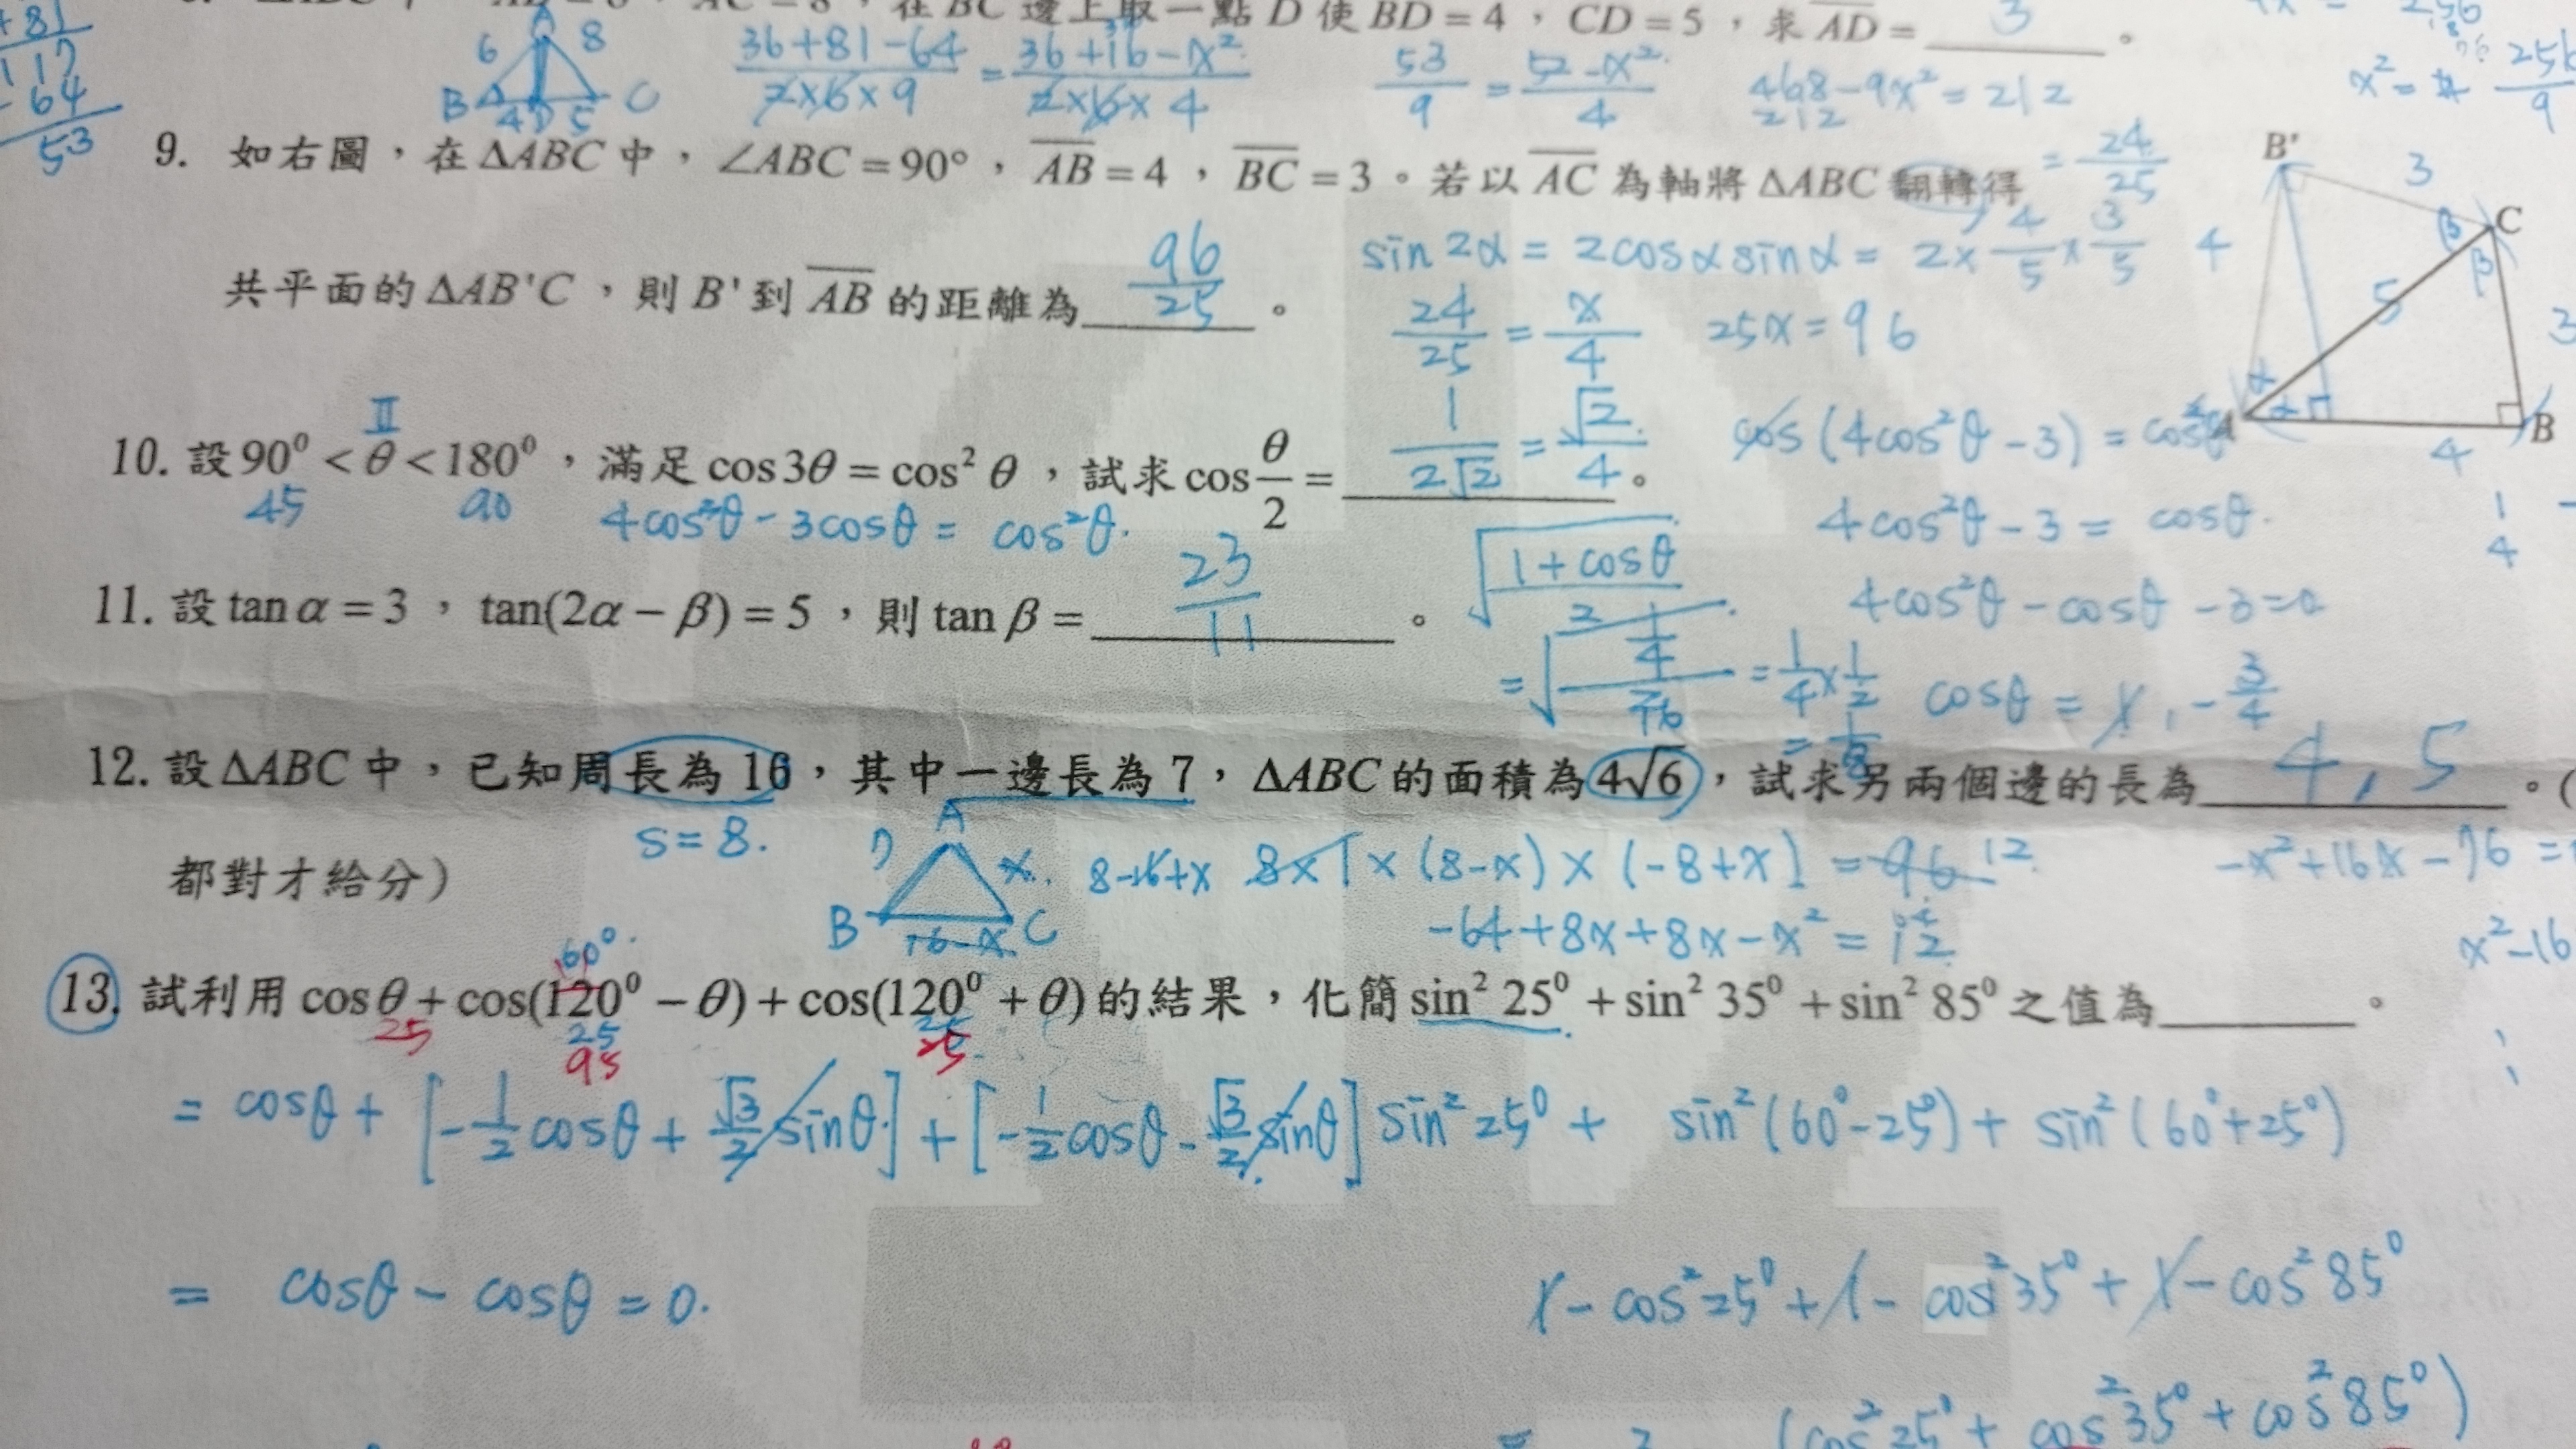 在 BC 邊上取一點 D 使 BD = 4 , CD = 5 , 求 AD = 3 。
+81
117
-64
53
A 6 8 B 4 D 5 C
(36+81-64)/(2×6×9) = (36+16-x²)/(2×6×4)
53/9 = (52-x²)/4
468-9x² = 212
212
256/9
9. 如右圖，在 ΔABC 中，∠ABC = 90°，AB = 4，BC = 3。若以 AC 為軸將 ΔABC 翻轉得
= 24/25
共平面的 ΔAB'C，則 B' 到 AB 的距離為 96/25 。
sin2α = 2cosα sinα = 2× 4/5 × 3/5
24/25 = x/4 25x = 96
B' 3 C β β 5 4 3 α α A 4 B
II
10. 設 90⁰ < θ < 180⁰，滿足 cos3θ = cos² θ，試求 cos θ/2 = 1/(2√2) = √2/4 。
45 90
4cos³θ - 3cosθ = cos²θ.
cos(4cos²θ - 3) = cos²θ
4cos²θ - 3 = cosθ.
4cos²θ - cosθ - 3 = 0
cosθ = 1, -3/4
11. 設 tan α = 3，tan(2α − β) = 5，則 tan β = 23/11 。
√((1+cosθ)/2)
= 1/4 × 1/2
= 1/8
12. 設 ΔABC 中，已知周長為 16，其中一邊長為 7，ΔABC 的面積為 4√6，試求另兩個邊的長為 4, 5 。(
都對才給分）
s = 8.
A 7 x B 16-x C
8-16+x 8×1×(8-x)×(-8+x) = 96 12
-64+8x+8x-x² = 12
-x²+16x-76 =
x²-16
13. 試利用 cosθ + cos(120⁰ − θ) + cos(120⁰ + θ) 的結果，化簡 sin² 25⁰ + sin² 35⁰ + sin² 85⁰ 之值為 。
60⁰
25 25 25
95
= cosθ + [-1/2 cosθ + √3/2 sinθ] + [-1/2 cosθ - √3/2 sinθ]
sin²25⁰ + sin²(60⁰-25⁰) + sin²(60⁰+25⁰)
= cosθ - cosθ = 0.
1 - cos²25⁰ + 1 - cos²35⁰ + 1 - cos²85⁰
(cos²25⁰ + cos²35⁰ + cos²85⁰)